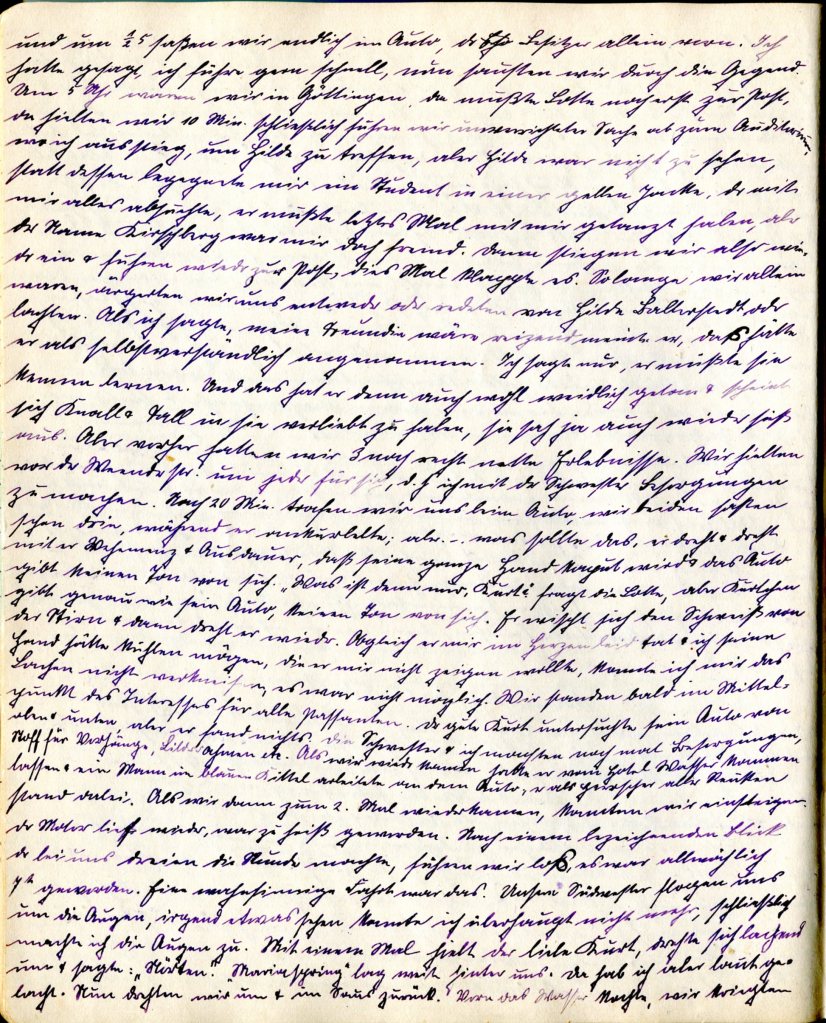 und um ½5 saßen wir endlich im Auto, der Besitzer allein vorn. Ich
hatte gesagt, ich führe gern schnell, nun sausten wir durch die Gegend.
Um 5 Uhr waren wir in Göttingen, da mußte Lotte noch erst zur Post,
da hielten wir 10 Min. schließlich fuhren wir unverrichteter Sache ab zum Auditorium,
wo ich ausstieg, um Hilde zu treffen, aber Hilde war nicht zu sehen,
statt dessen begegnete mir ein Student in einer gelben Jacke, der mit
mir alles absuchte, er mußte letztes Mal mit mir getanzt haben, aber
der Name Kirschberg war mir doch fremd. Dann stiegen wir also wie-
der ein & fuhren wieder zur Post, dies Mal klappte es. Solange wir allein
waren, ärgerten wir uns entweder oder redeten von Hilde Ballerstedt oder
lachten. Als ich sagte, meine Freundin wäre reizend meinte er, daß hätte
er als selbstverständlich angenommen. Ich sagte nur, er müßte sie
kennen lernen. Und das hat er denn auch wohl weidlich getan & scheint
sich Knall & Fall in sie verliebt zu haben, sie sah ja auch wieder süß
aus. Aber vorher hatten wir 3 noch recht nette Erlebnisse. Wir hielten
vor der Weenderstr. um jeder für sich, d. h. ich mit der Schwester Besorgungen
zu machen. Nach 20 Min. trafen wir uns beim Auto, wir beiden saßen
schon drin, während er ankurbelte; aber - - was sollte das, er dreht & dreht
mit er Vehemenz & Ausdauer, daß seine ganze Hand kaput wird & das Auto
gibt keinen Ton von sich. „Was ist denn nur, Kurt“ fragt die Lotte, aber Kurtchen
gibt genau wie sein Auto, keinen Ton von sich. Er wischt sich den Schweiß von
der Stirn & dann dreht er wieder. Obgleich er mir im Herzen leid tat & ich seine
Hand hätte kühlen mögen, die er mir nicht zeigen wollte, konnte ich mir das
Lachen nicht verkneifen, es war nicht möglich. Wir standen bald im Mittel-
punkt des Interesses für alle Passanten. Der gute Kurt untersuchte sein Auto von
oben & unten aber er fand nichts. Die Schwester & ich machten noch mal Besorgungen,
Stoff für Vorhänge, Bilderrahmen etc. Als wir wieder kamen hatte er vom Hotel kommen
lassen & ein Mann im blauen Kittel arbeitete an dem Auto, er als
stand dabei. Als wir dann zum 2. Mal wiederkamen, konnten wir einsteigen.
der Motor lief wieder, war zu heiß geworden. Nach einem bezeichnenden Blick
der bei uns dreien die Runde machte, fuhren wir los, es war allmählich
geworden. Eine wahnsinnige Fahrt war das. Unsere Südwester flogen uns
um die Augen, irgend etwas sehen konnte ich überhaupt nicht mehr, schließlich
machte ich die Augen zu. Mit einem Mal hielt der liebe Kurt, drehte sich lachend
um & sagte: „Nörten.“ „Mariaspring“ lag weit hinter uns. Da hab ich aber laut ge-
lacht. Nun drehten wir um & im Saus zurück. Vorn das Wasser kochte, wir kriegten